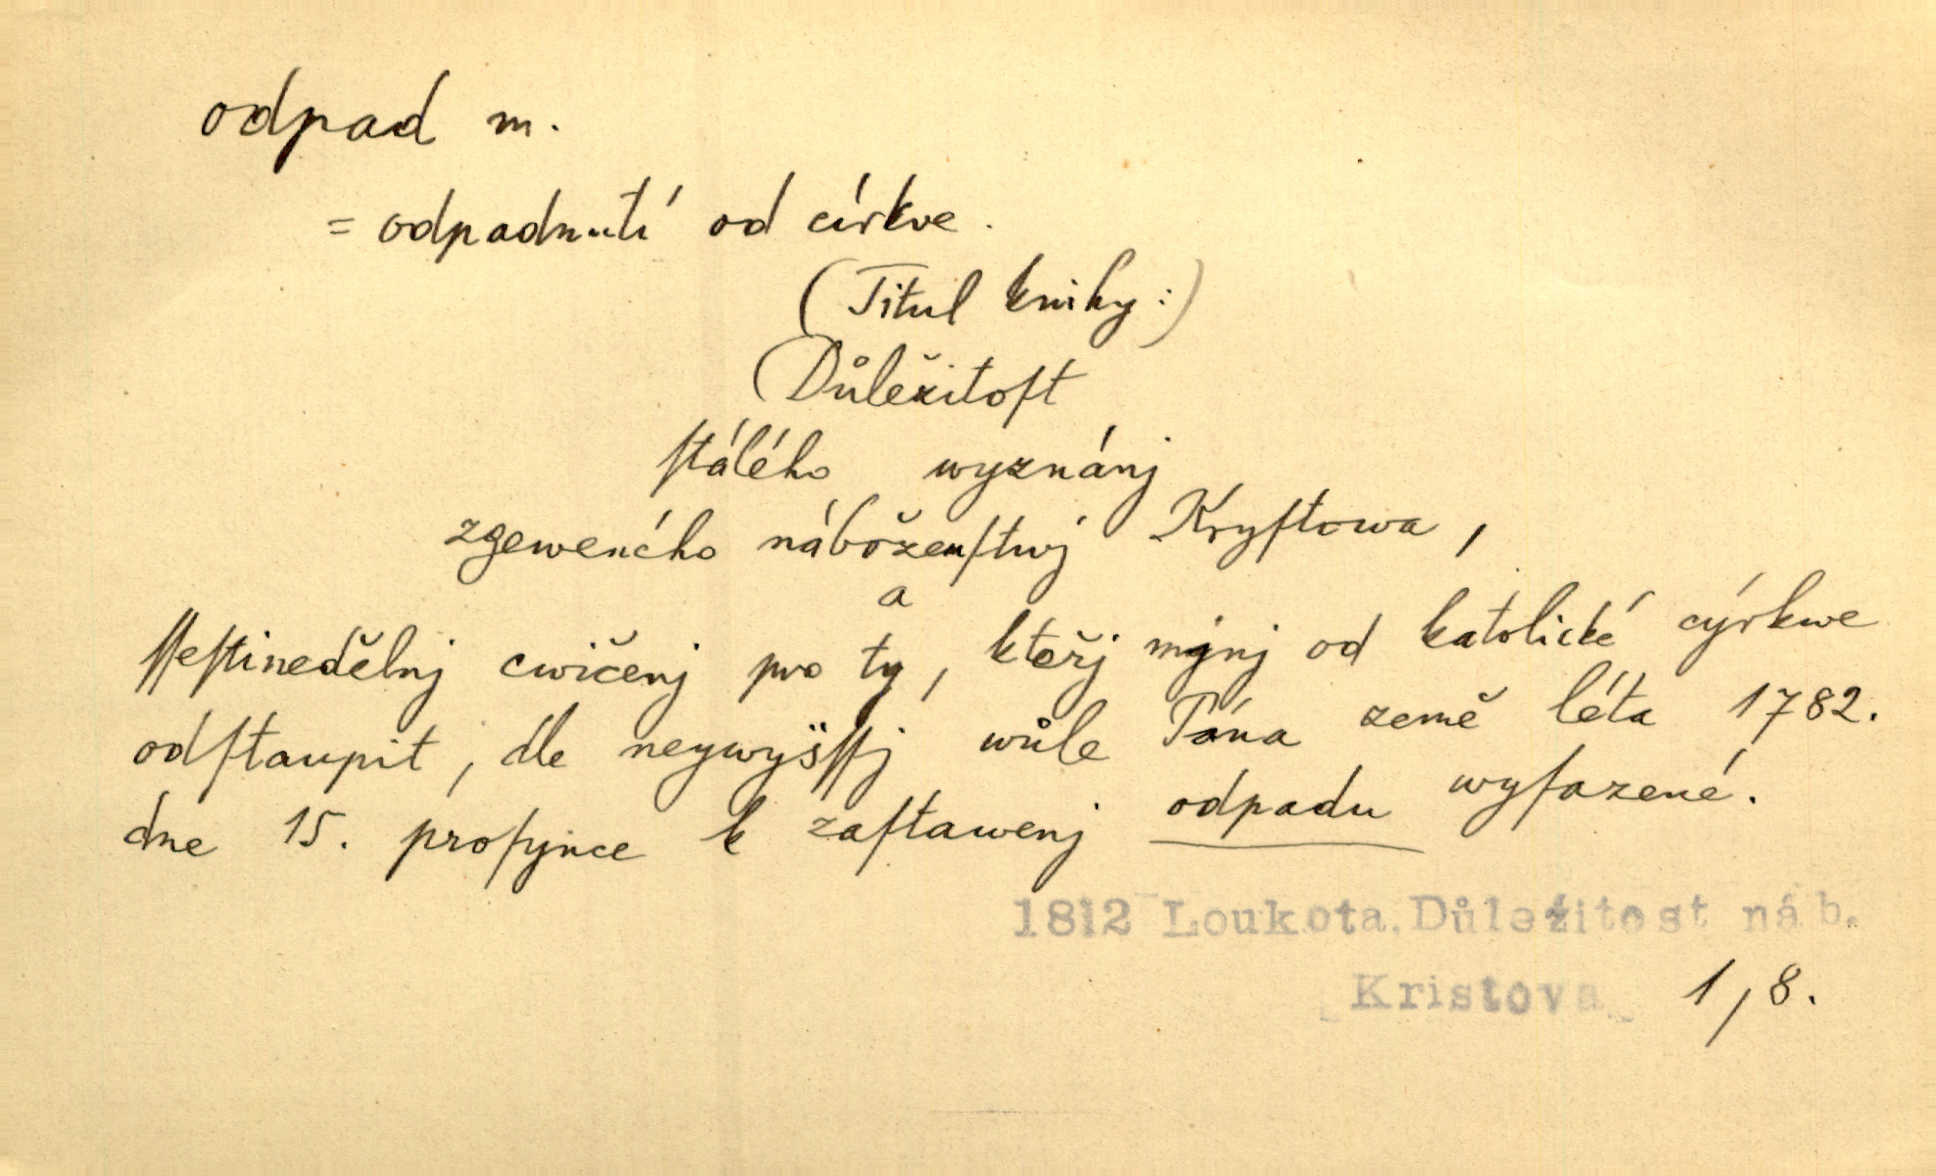 odpad m.
= odpadnutí od církve.
(Titul knihy:)
(Důležitoſt
ſtálého wyznánj
zgeweného náboženſtwj Kryſtowa,
a
ſſeſtinedělnj cwičenj pro ty, kteřj mjnj od katolické cýrkwe
odſtaupit, dle neywyšſſj wůle Pána země léta 1782.
dne 15. proſynce k zaſtawenj odpadu wyſazené.
1812 Loukota, Důležitost náb.
Kristova 1, 8.